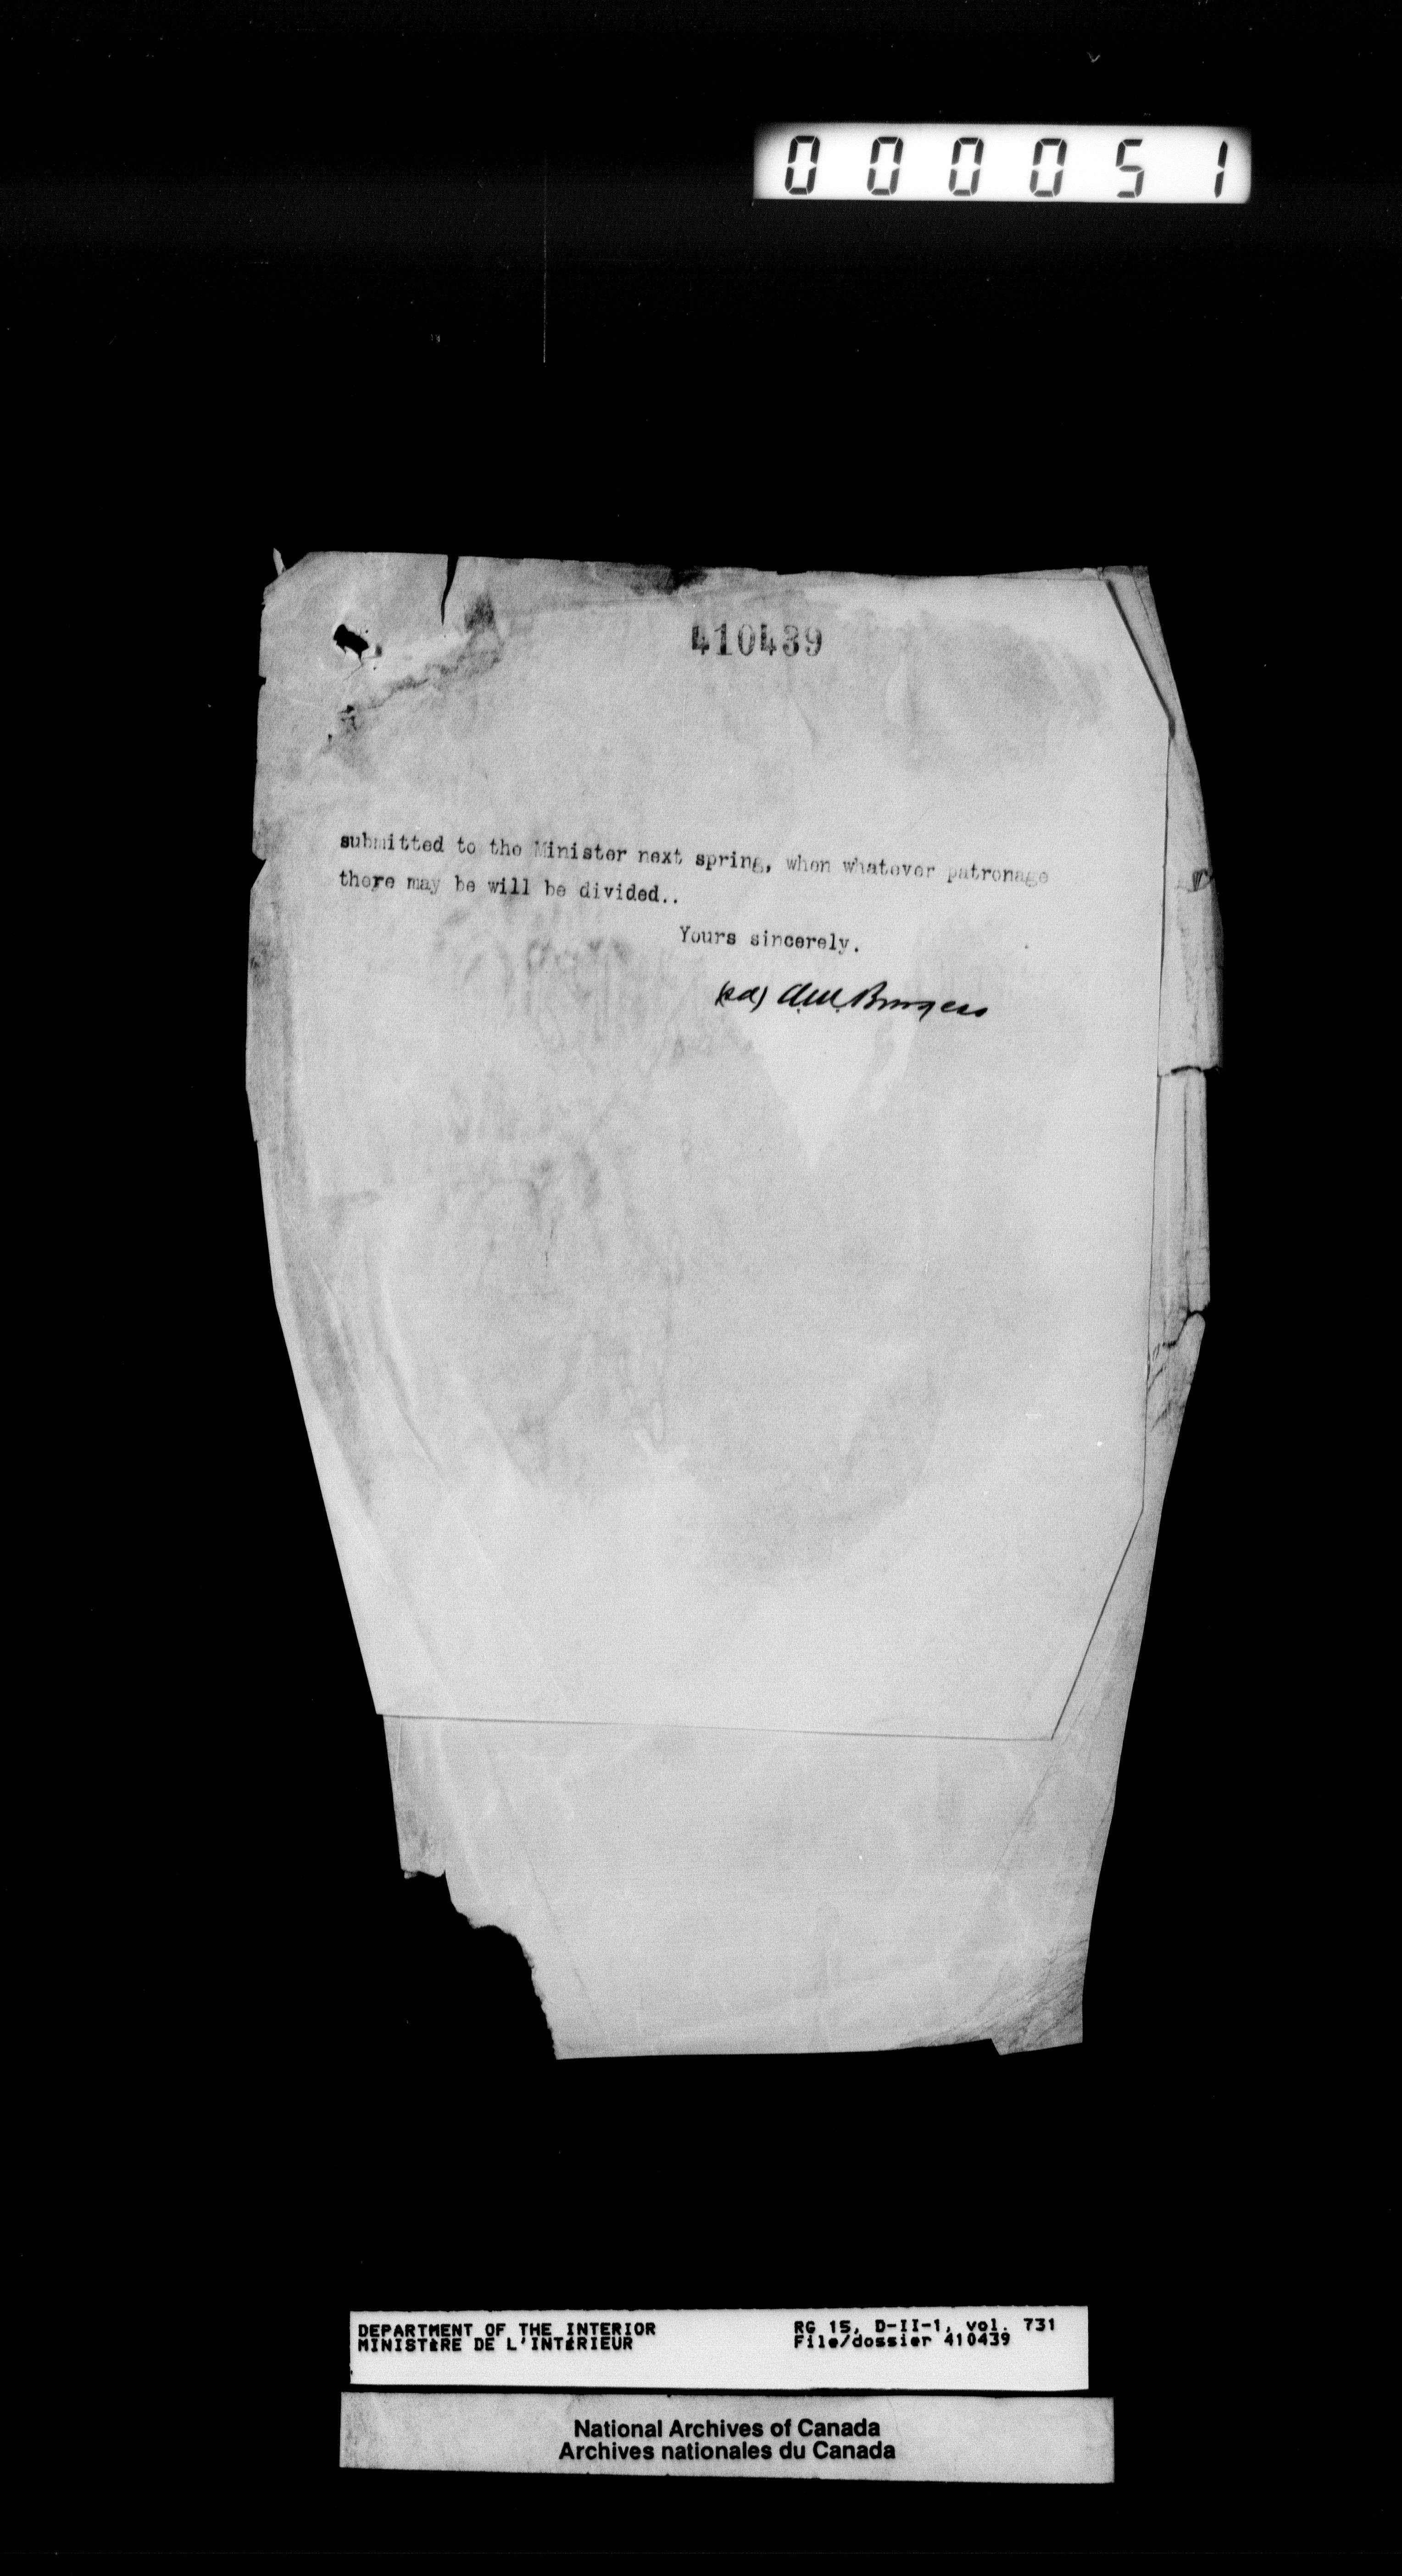 000051
410439
submitted to the Minister next spring, when whatever patronage
there may be will be divided..
Yours sincerely.
(sd) A.M. Burgess
DEPARTMENT OF THE INTERIOR
MINISTÈRE DE L'INTÉRIEUR
RG 15, D-II-1, vol. 731
File/dossier 410439
National Archives of Canada
Archives nationales du Canada